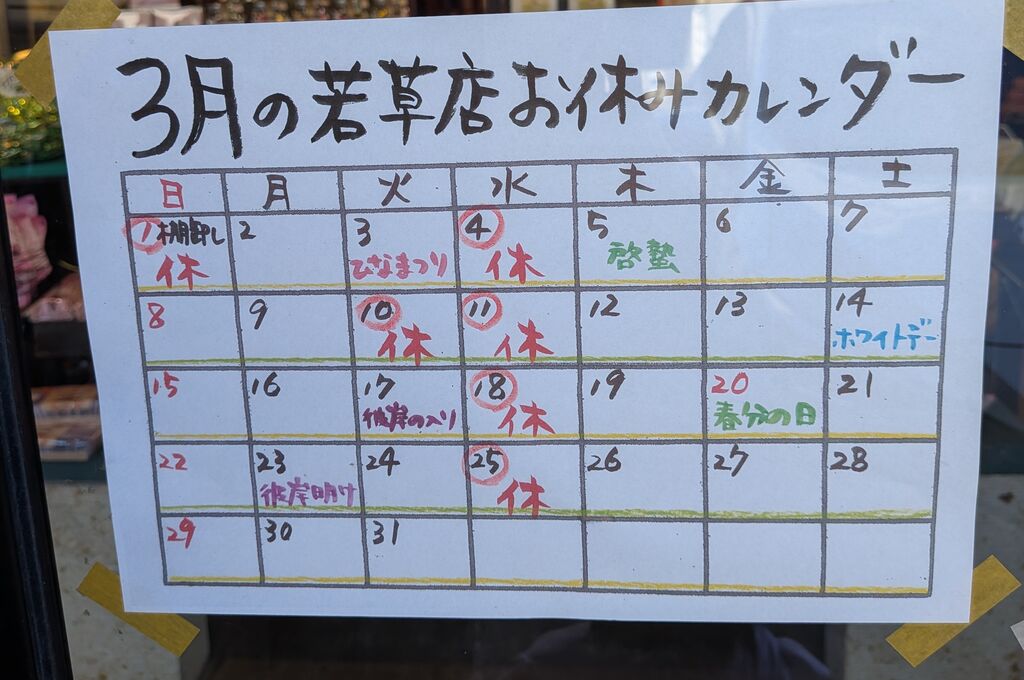 3月の若草店お休みカレンダー
日 月 火 水 木 金 土
1 棚卸し 2 3 4 5 6 7
休 ひなまつり 休 啓蟄
8 9 10 11 12 13 14
休 休 ホワイトデー
15 16 17 18 19 20 21
彼岸の入り 休 春分の日
22 23 24 25 26 27 28
彼岸明け 休
29 30 31